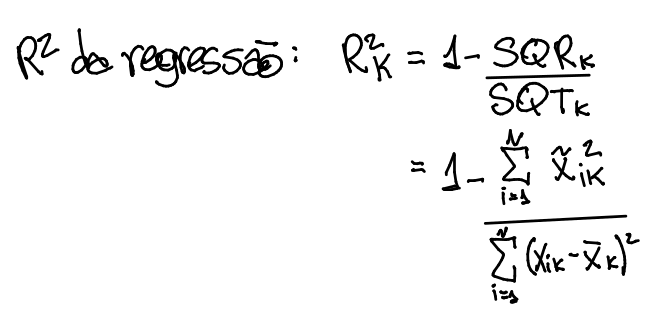 R² da regressão: R²_K = 1 - SQR_K / SQT_K
= 1 - ∑_{i=1}^{N} x̃_{iK}² / ∑_{i=1}^{N} (x_{iK} - x̄_K)²